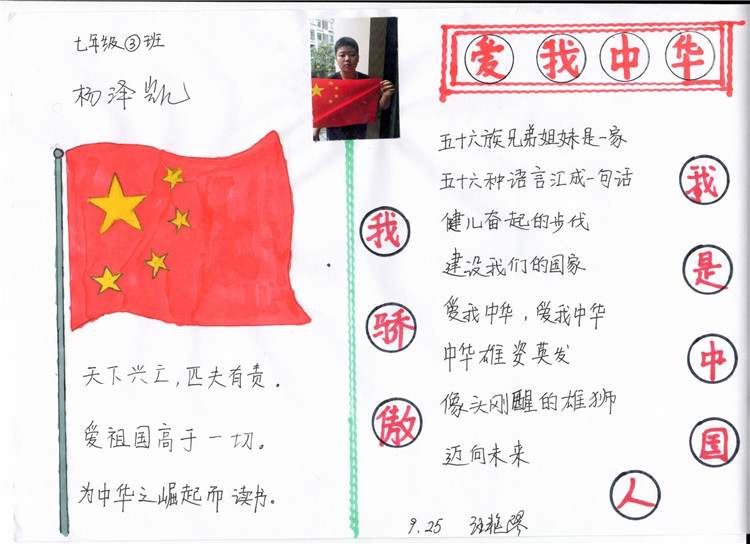 七年级③班
杨泽凯
天下兴亡，匹夫有责。
爱祖国高于一切。
为中华之崛起而读书。
我骄傲
爱我中华
五十六族兄弟姐妹是一家
五十六种语言汇成一句话
健儿奋起的步伐
建设我们的国家
爱我中华，爱我中华
中华雄姿英发
像头刚醒的雄狮
迈向未来
我是中国人
9.25